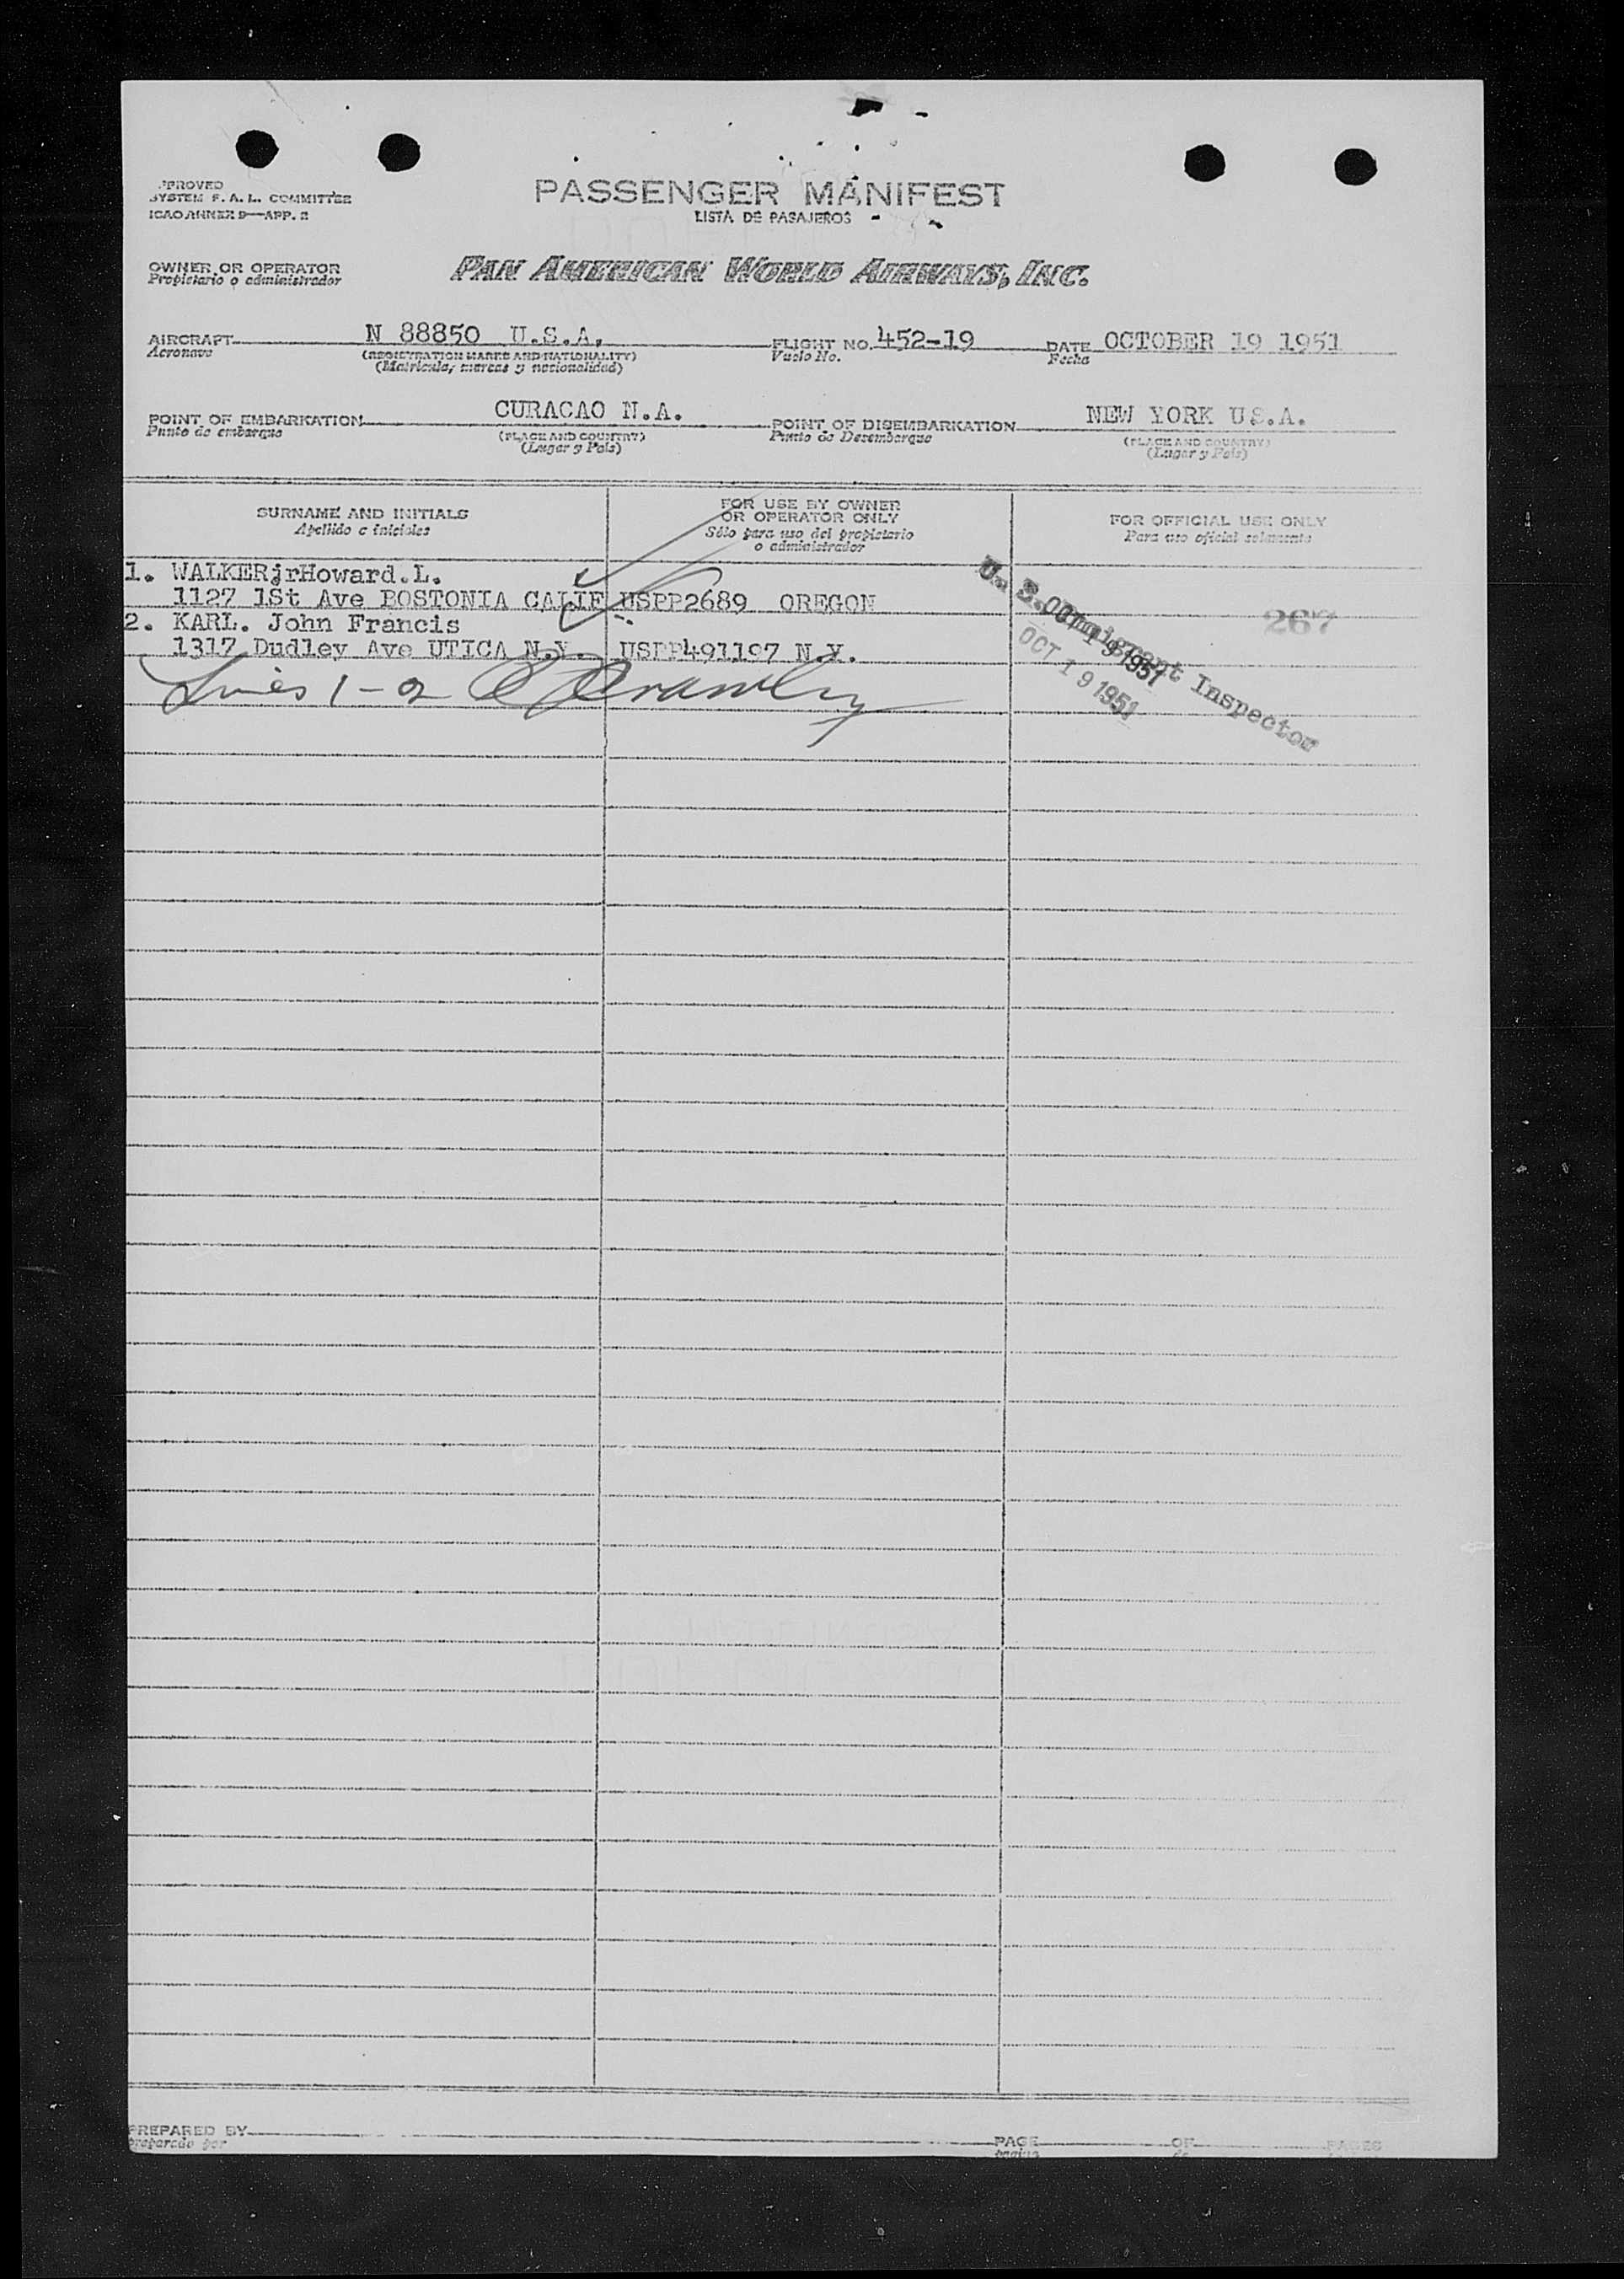 PPROVED
SYSTEM F. A. L. COMMITTEE
ICAO ANNEX 9—APP. 2
PASSENGER MANIFEST
LISTA DE PASAJEROS
OWNER OR OPERATOR
Propietario o administrador
PAN AMERICAN WORLD AIRWAYS, INC.
AIRCRAFT N 88850 U.S.A. FLIGHT NO. 452-19 DATE OCTOBER 19 1951
Aeronave (REGISTRATION MARKS AND NATIONALITY) Vuelo No. Fecha
(Matricula, marcas y nacionalidad)
POINT OF EMBARKATION CURACAO N.A. POINT OF DISEMBARKATION NEW YORK U.S.A.
Punto de embarque (PLACE AND COUNTRY) Punto de Desembarque (PLACE AND COUNTRY)
(Lugar y País) (Lugar y País)
SURNAME AND INITIALS
Apellido e iniciales
FOR USE BY OWNER
OR OPERATOR ONLY
Sólo para uso del propietario
o administrador
FOR OFFICIAL USE ONLY
Para uso oficial solamente
1. WALKERjrHoward.L.
1127 1St Ave BOSTONIA CALIF USPP2689 OREGON
267
2. KARL. John Francis
1317 Dudley Ave UTICA N.Y. USPP491197 N.Y.
Lines 1-2
U. S. Immigrant Inspector
OCT 19 1951
OCT 19 1951
PREPARED BY PAGE OF PAGES
preparado por pagina de